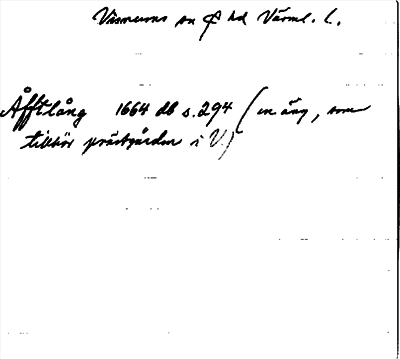 Visnums sn ₵ hd Värml. l.
Åfftlång 1664 db s.294 (en äng, som
tillhör prästgården i V.)